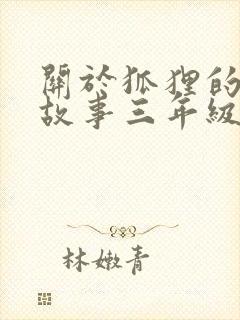 關於狐狸的
故事三年級
林嫩青